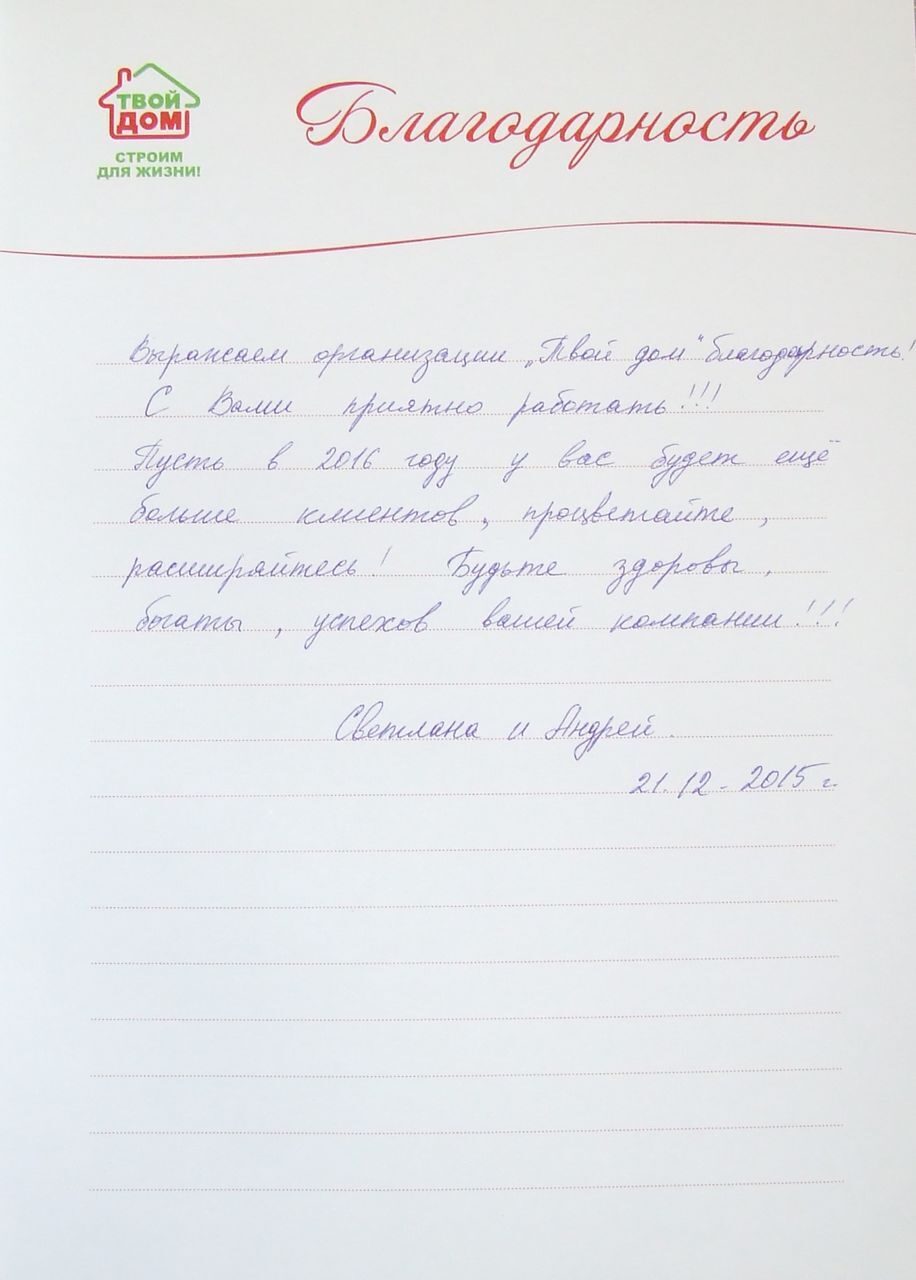 ТВОЙ
ДОМ
СТРОИМ
ДЛЯ ЖИЗНИ!
Благодарность
Выражаем организации „Твой дом" благодарность!
С Вами приятно работать!!!
Пусть в 2016 году у вас будет ещё
больше клиентов, процветайте,
расширяйтесь! Будьте здоровы,
богаты, успехов вашей компании!!!
Светлана и Андрей.
21.12-2015 г.